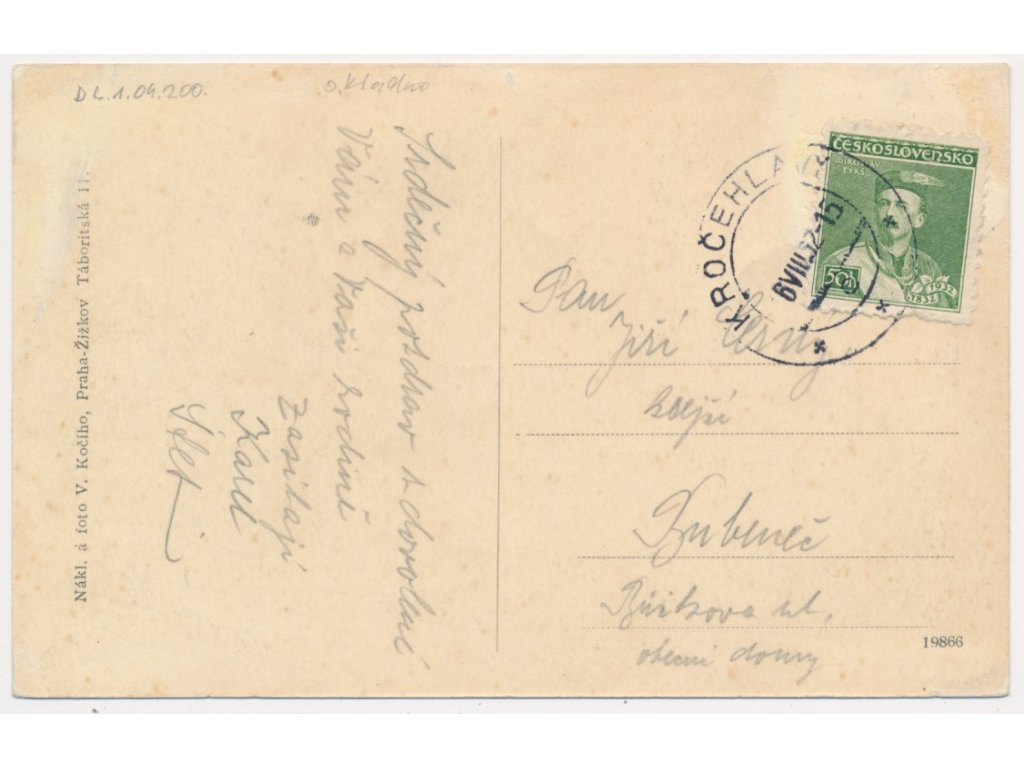 DL.1.04.200.
o. Kladno
Srdečný pozdrav z dovolené
Vám a Vaší rodině
zasílají
Karel
Nákl. a foto V. Kočího, Praha-Žižkov Táboritská 11.
KROČEHLAVY
6 VIII 32-15
ČESKOSLOVENSKO
MIROSLAV
TYRŠ
50h
1832 1932
Pan
Jiří
Bubeneč
ul.
obecní domy
19866